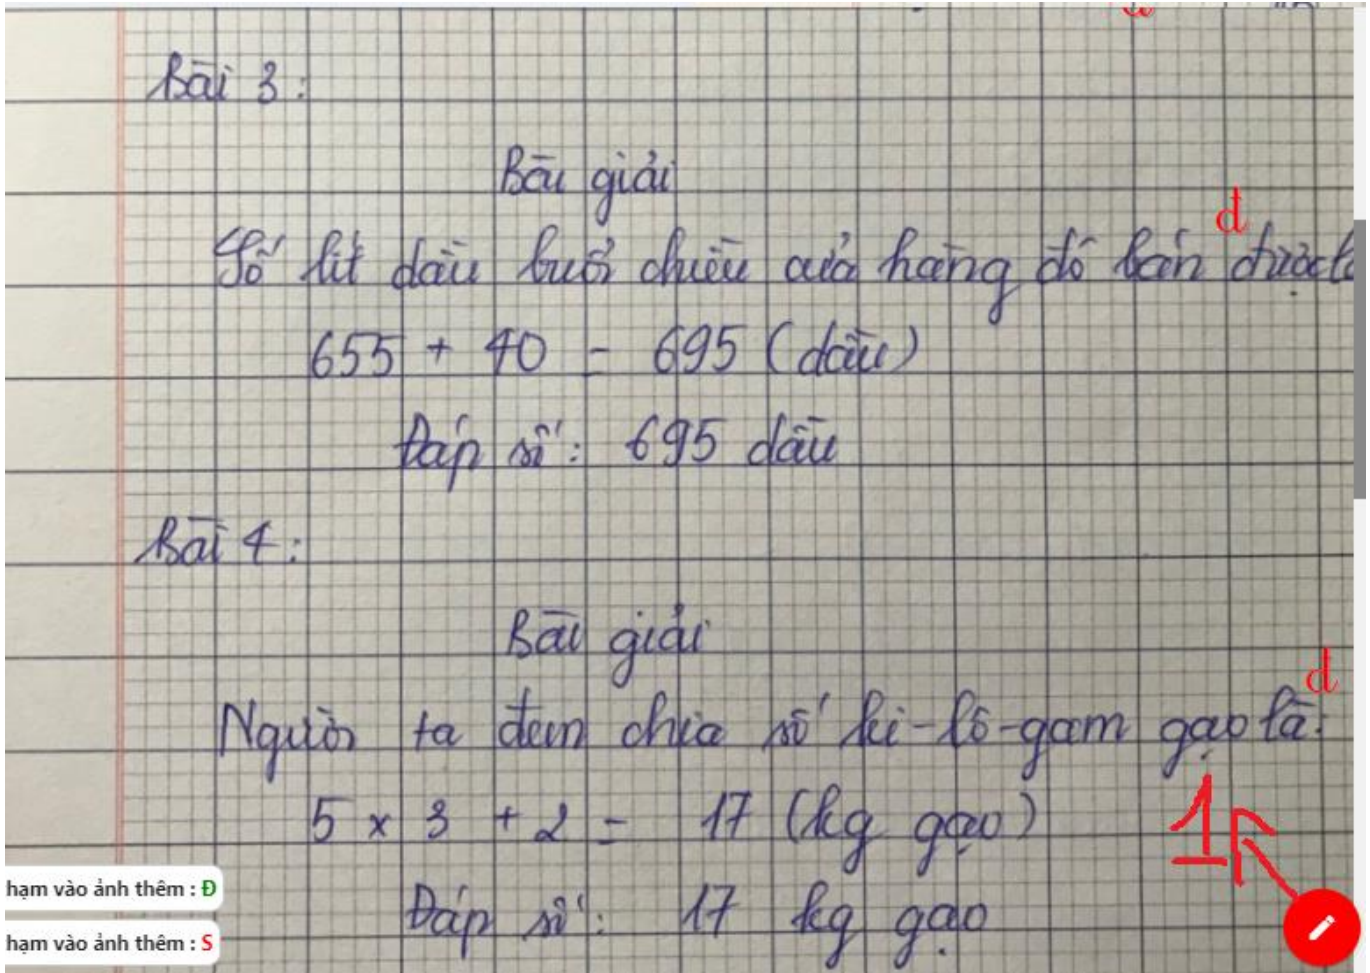 Bài 3:
Bài giải
đ
Số lít dầu buổi chiều cửa hàng đó bán được
655 + 40 = 695 (dầu)
Đáp số: 695 dầu
Bài 4:
Bài giải
đ
Người ta đem chia số ki-lô-gam gạo là:
5 × 3 + 2 = 17 (kg gạo)
1
hạm vào ảnh thêm : Đ
Đáp số: 17 kg gạo
hạm vào ảnh thêm : S